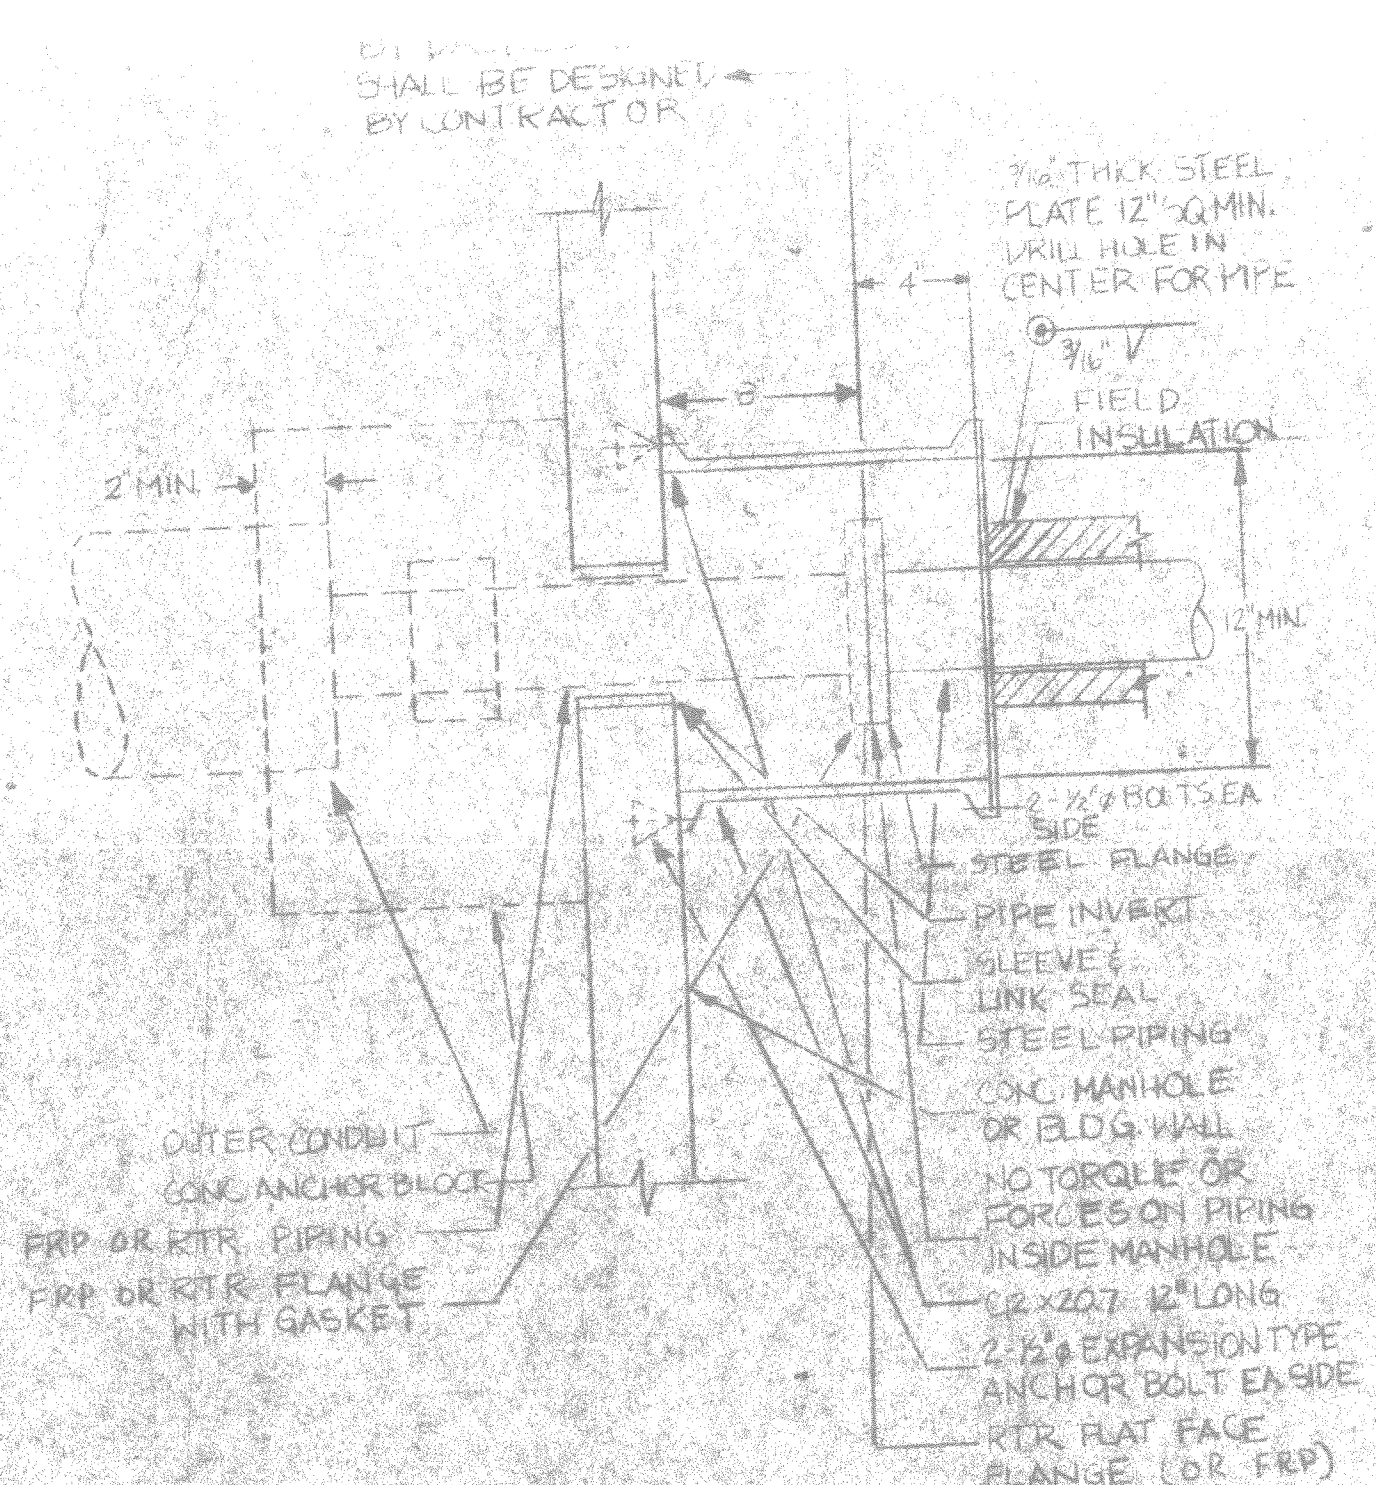 SHALL BE DESIGNED
BY CONTRACTOR
3/16" THICK STEEL
PLATE 12" SQ MIN.
DRILL HOLE IN
CENTER FOR PIPE
4"
3/16"
8"
FIELD
INSULATION
2" MIN.
12" MIN.
2-1/2"φ BOLTS EA
SIDE
STEEL FLANGE
PIPE INVERT
SLEEVE &
LINK SEAL
STEEL PIPING
CONC MANHOLE
OR BLDG. WALL
NO TORQUE OR
FORCES ON PIPING
INSIDE MANHOLE
C12 x 20.7 12" LONG
2-1/2"φ EXPANSION TYPE
ANCHOR BOLT EA SIDE
RTR FLAT FACE
FLANGE (OR FRP)
OUTER CONDUIT
CONC ANCHOR BLOCK
FRP OR RTR PIPING
FRP OR RTR FLANGE
WITH GASKET